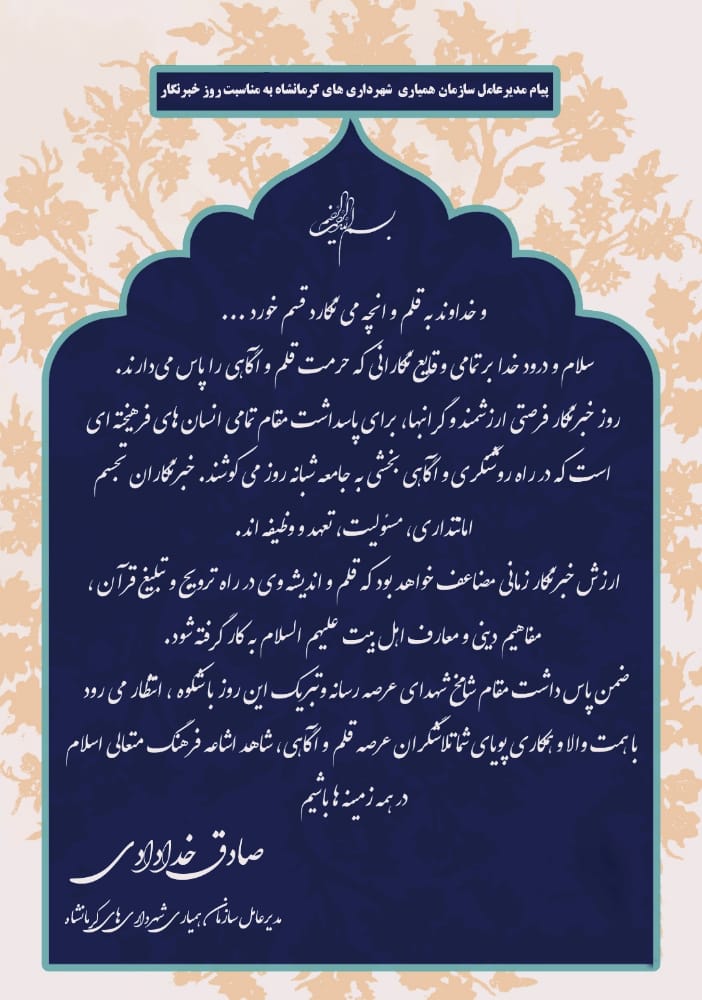 پیام مدیرعامل سازمان همیاری شهرداری های کرمانشاه به مناسبت روز خبرنگار
بسم الله الرحمن الرحیم
و خداوند به قلم و انچه می نگارد قسم خورد ...
سلام و درود خدا بر تمامی وقایع نگارانی که حرمت قلم و آگاهی را پاس می‌دارند.
روز خبرنگار فرصتی ارزشمند و گرانبها، برای پاسداشت مقام تمامی انسان های فرهیخته ای
است که در راه روشنگری و آگاهی بخشی به جامعه شبانه روز می کوشند. خبرنگاران تجسم
امانتداری، مسئولیت، تعهد و وظیفه اند.
ارزش خبرنگار زمانی مضاعف خواهد بود که قلم و اندیشه وی در راه ترویج و تبلیغ قرآن ،
مفاهیم دینی و معارف اهل بیت علیهم السلام به کار گرفته شود.
ضمن پاس داشت مقام شامخ شهدای عرصه رسانه وتبریک این روز باشکوه ، انتظار می رود
با همت والا و همکاری پویای شما تلاشگران عرصه قلم و آگاهی، شاهد اشاعه فرهنگ متعالی اسلام
در همه زمینه ها باشیم
صادق خدادادی
مدیرعامل سازمان همیاری شهرداری های کرمانشاه